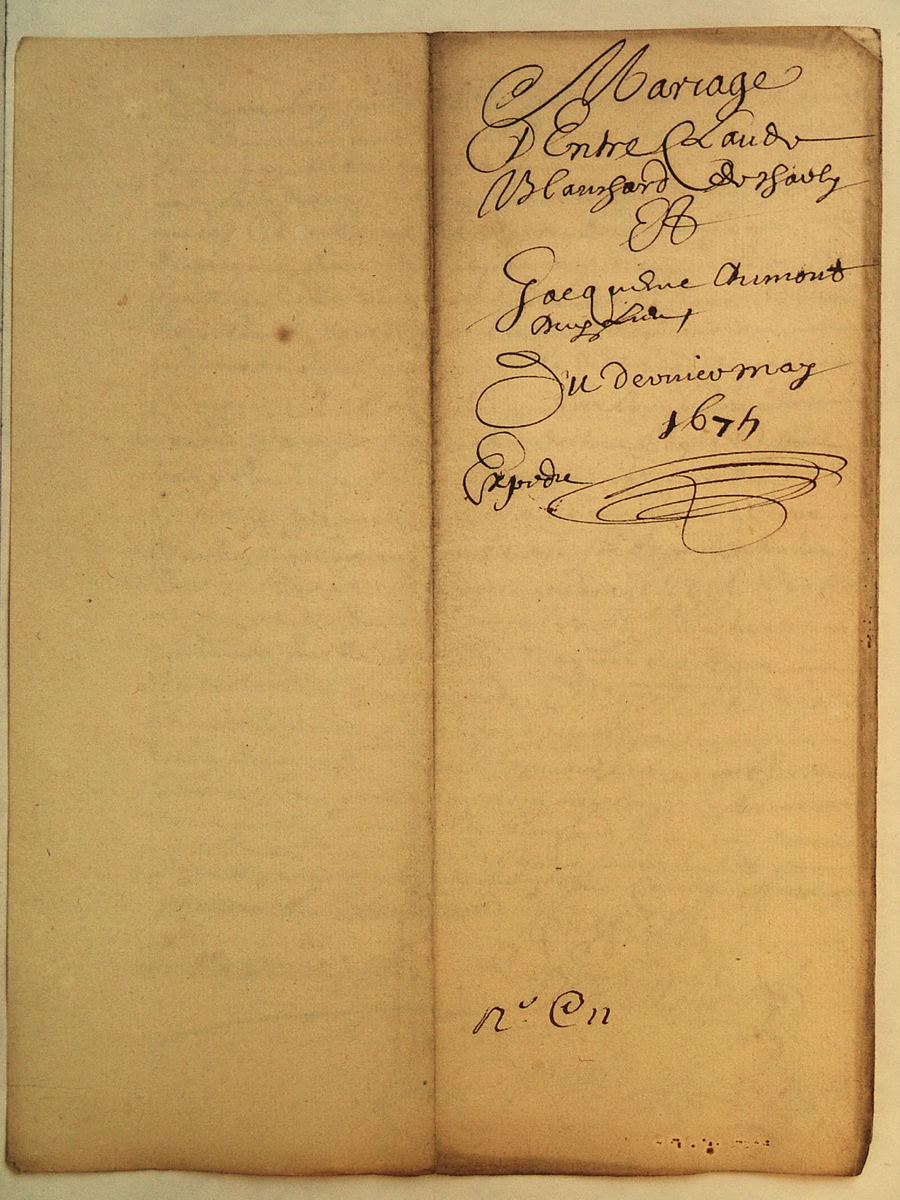 Mariage
D'Entre Claude
Blanchard
Et
Jacquême Aumont
Du dernier may
1675
Expedie
n.º